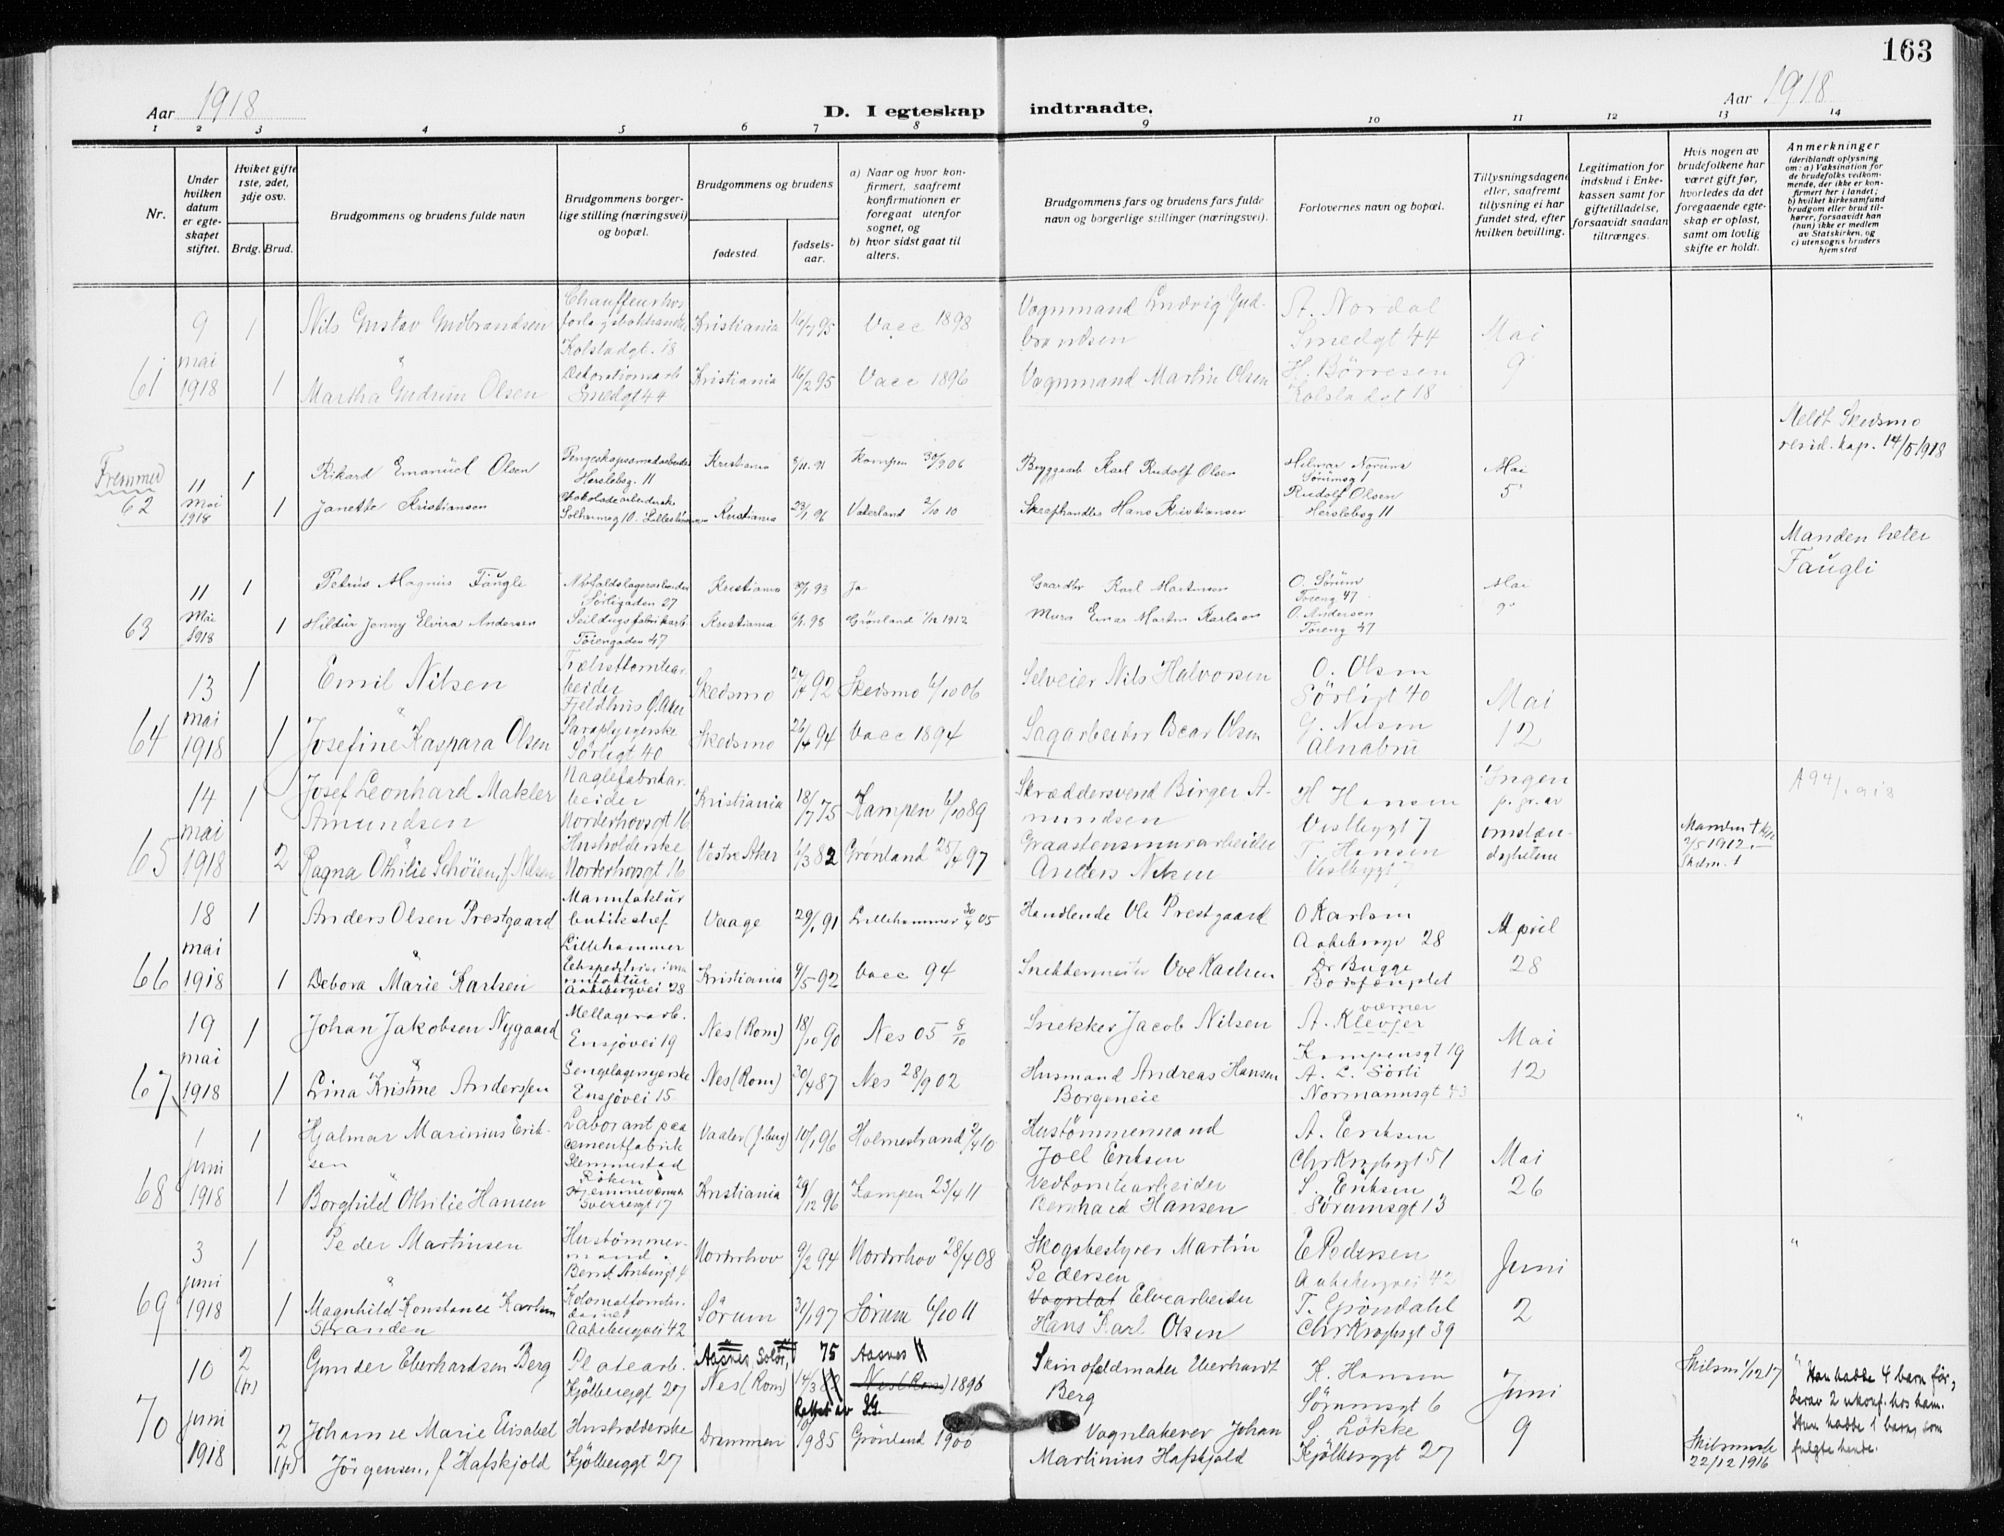 163
Aar 1918
D. I egteskap indtraadte.
Aar 1918
1 2 3 4 5 6 7 8 9 10 11 12 13 14
Nr.
Under hvilken datum er egteskapet stiftet.
Hvilket gifte 1ste, 2det, 3dje osv.
Brdg. Brud.
Brudgommens og brudens fulde navn
Brudgommens borgerlige stilling (næringsvei) og bopæl.
Brudgommens og brudens
fødested
fødselsaar.
a) Naar og hvor konfirmert, saafremt konfirmationen er foregaat utenfor sognet, og
b) hvor sidst gaat til alters.
Brudgommens fars og brudens fars fulde navn og borgerlige stillinger (næringsvei).
Forlovernes navn og bopæl.
Tillysningsdagene eller, saafremt tillysning ei har fundet sted, efter hvilken bevilling.
Legitimation for indskud i Enkekassen samt for giftetilladelse, forsaavidt saadan tiltrænges.
Hvis nogen av brudefolkene har været gift før, hvorledes da det foregaaende egteskap er opløst, samt om lovlig skifte er holdt.
Anmerkninger
(deriblandt oplysning om: a) Vaksination for de brudefolks vedkommende, der ikke er konfirmert her i landet; b) hvilket kirkesamfund brudgom eller brud tilhører, forsaavidt han (hun) ikke er medlem av Statskirken, og c) utensogns bruders hjemsted
61 9 mai 1918
1 Nils Gustav Gudbrandsen
Kolstadgt. 18
Kristiania 16/7 95 Vacc 1898
Vognmand Ludvig Gudbrandsen
A. Nordal
Smedgt 44
Mai 9
1 Martha Gudrun Olsen
Smedgt 44
Kristiania 16/2 95 Vacc 1896
Vognmand Martin Olsen
H. Børresen
Kolstadgt 18
Fremmed
62 11 Mai 1918
1 Rikard Emanuel Olsen
Pengeskapsmedarbeider
Herslebsg. 11
Kristiania Kampen 30/9 06
Bryggearb Karl Rudolf Olsen
Hilmar Norum
Mai 5
Meldt Skedsmo resid. kap. 14/5 1918
1 Janette Kristiansen
Kristiania 23/1 96 Vaterland 2/10 10
Skraphandler Hans Kristiansen
Rudolf Olsen
Herslebsg 11
63 11 Mai 1918
1 Petrus Magnus Faugli
Sørligaden 27
Kristiania Ja
Gaardbr Karl Martinsen
O. Sørum
Tøieng 47
Mai 9
Manden heter Faugli
1 Hildur Jenny Elvira Andersen
Seildugsfabrikarb
Tøiengaden 47
Kristiania Grønland 1912
Murer Einar Morten Karlsen
O. Andersen
Tøieng 47
64 13 mai 1918
1 Emil Nilsen
Trælasttomtearbeider
Fjeldhus Ø. Aker
Skedsmo 92 Skedsmo 6/10 06
Selveier Nils Halvorsen
O. Olsen
Sørligt 40
Mai 12
1 Josefine Kaspara Olsen
Sørligt 40
Skedsmo 26/4 94 Vacc 1894
Sagarbeider Bear Olsen
G. Nilsen
Alnabru
65 14 mai 1918
1 Josef Leonhard Makler Amundsen
Naglefabrikarbeider
Norderhovsgt 16
Kristiania 18/7 75 Kampen 6/10 89
Skræddersvend Birger Amundsen
H Hansen
Vestbygt 7
Ingen p. gr. av omstændigheterne
2 Ragna Othilie Schøien, f. Nilsen
Husholderske
Norderhovsgt 16
Vestre Aker 1/3 82 Grønland 25/4 97
Graastensmurarbeider Anders Nilsen
T. Hansen
Vestbygt 7
66 18 mai 1918
1 Anders Olsen Prestgaard
Manufakturbutikchef
Lillehammer
Vaage 29/1 91 Lillehammer 30/4 05
Handlende Ole Prestgaard
O Karlsen
Aakebergv 28
April 28
1 Debora Marie Karlsen
Aakebergvei 28
Kristiania 9/5 92 Vacc 94
Snekkermester Ove Karlsen
Dr Bugge
Botsfængslet
67 19 mai 1918
1 Johan Jakobsen Nygaard
Mellagerarb.
Ensjøvei 19
Nes (Rom) 18/10 90 Nes 05 8/10
Snekker Jacob Nilsen
A. Klevjer værner
Kampensgt 19
Mai 12
1 Lina Kristine Anderssen
Sengelagersyerske
Ensjøvei 15
Nes (Rom) 30/4 87 Nes 28/9 02
Husmand Andreas Hansen
Borgeneie
A. L. Sørli
Normannsgt 43
68 1 juni 1918
1 Hjalmar Marinius Eriksen
Laborant paa cementfabrik
Slemmestad
Røken
Vaaler (J.berg) 10/1 96 Holmestrand 3/4 10
Hustømmermand Joel Eriksen
A. Eriksen
Chr Kroghsgt 51
Mai 26
1 Borghild Othilie Hansen
Hjemmeværende
Sverresgt 17
Kristiania 29/12 96 Kampen 23/4 11
Vedtomtearbeider Bernhard Hansen
S. Eriksen
Sørumsgt 13
69 3 juni 1918
1 Peder Martinsen
Hustømmermand.
Bernt Ankersgt 4
Norderhov 9/2 94 Norderhov 28/4 08
Skogsbestyrer Martin Pedersen
E Pedersen
Aakebergvei 42
Juni 2
1 Magnhild Konstance Karlsen Stranden
Aakebergvei 42
Sørum 31/1 97 Sørum 6/10 11
Elvearbeider Hans Karl Olsen
T. Grøndahl
Chr Kroghsgt 39
70 10 juni 1918
2 Gunder Eberhardsen Berg
Platearb.
Kjølberggt 27
Aasnes, Solør 75 Aasnes
Nes (Rom) 14/3 Nes (Rom) 1896
Rettet av
Skinnfeldmaker Eberhardt Berg
K. Hansen
Sörumsgt 6
Juni 9
Skilsm 1/12 17
Han hadde 4 barn før, derav 2 ukonf. hos ham. Hun hadde 1 barn, som fulgte hende.
2 Johanne Marie Elisabet Jørgensen, f Hafskjold
Husholderske
Kjølberggt 27
Drammen 85 Grønland 1900
Vognlakerer Johan Martinius Hafskjold
S. Løkke
Kjølberggt 27
Skilsmisse 22/12 1916